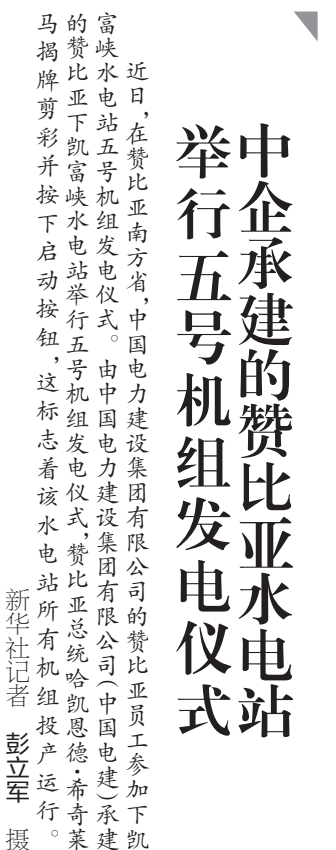 中企承建的赞比亚水电站
举行五号机组发电仪式
近日，在赞比亚南方省，中国电力建设集团有限公司的赞比亚员工参加下凯
富峡水电站五号机组发电仪式。由中国电力建设集团有限公司（中国电建）承建
的赞比亚下凯富峡水电站举行五号机组发电仪式，赞比亚总统哈凯恩德·希奇莱
马揭牌剪彩并按下启动按钮，这标志着该水电站所有机组投产运行。
新华社记者 彭立军 摄